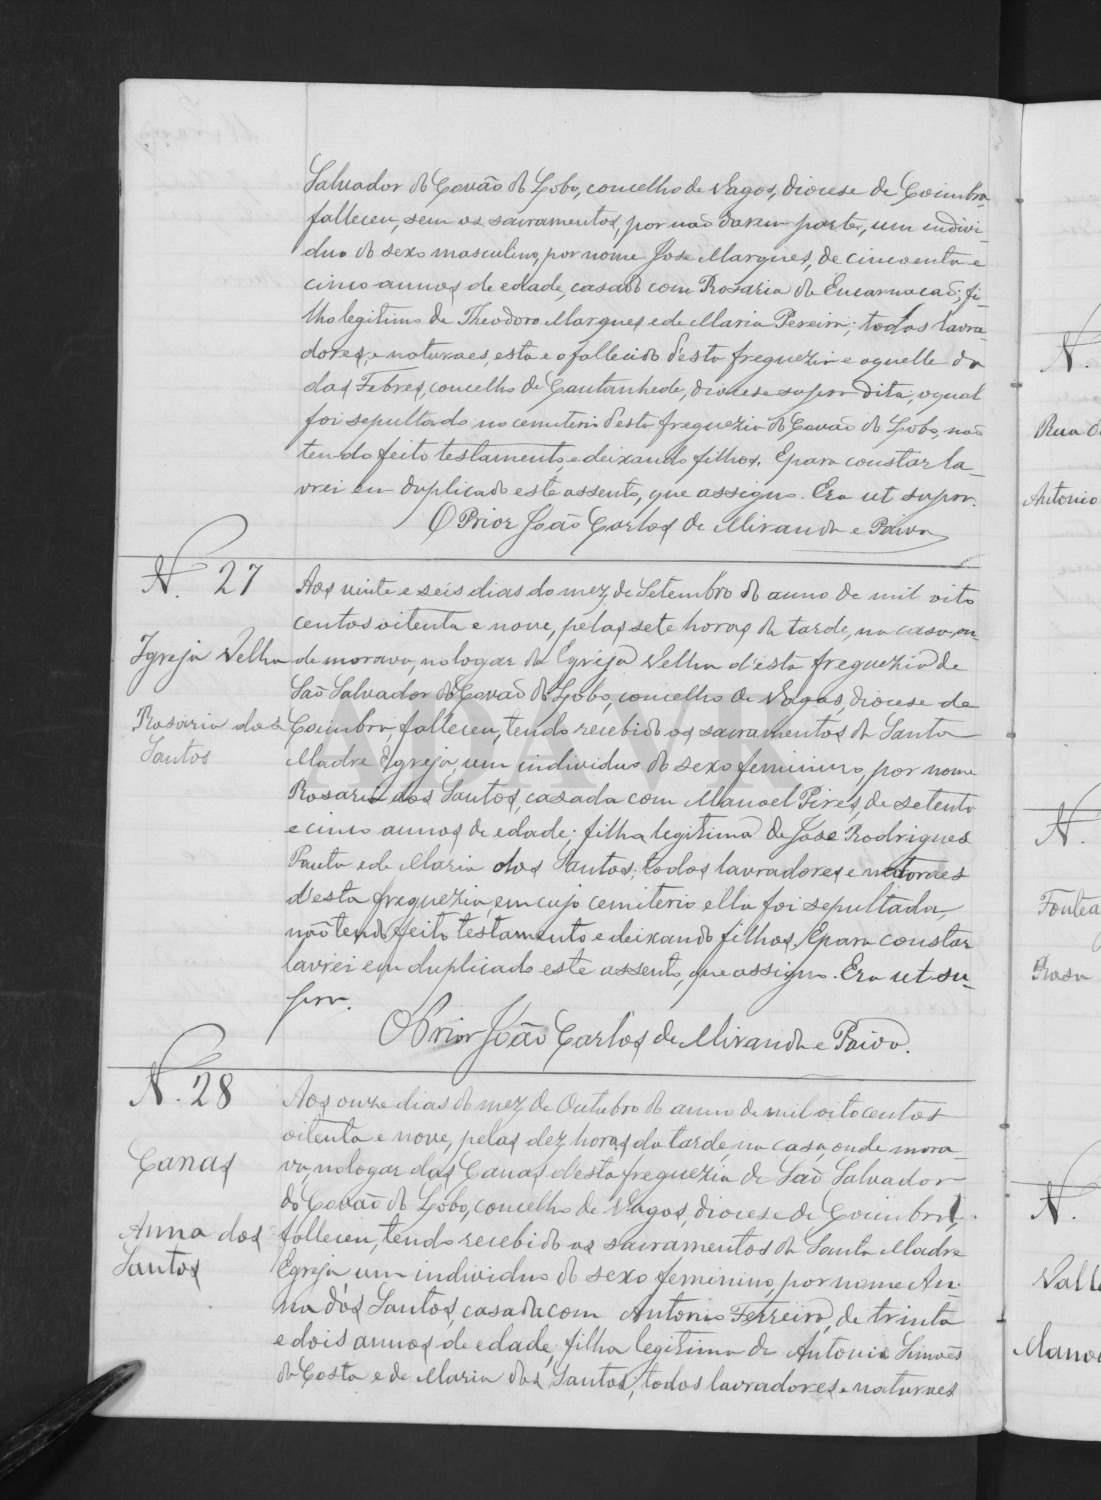 Salvador do Covão do Lobo, concelho de Vagos, diocese de Coimbra,
falleceu, sem os sacramentos, por não darem parte, um indivi-
duo do sexo masculino, por nome José Marques, de cincoenta e
cinco annos de edade, casado com Rosaria da Encarnação; fi-
lho legitimo de Theodoro Marques e de Maria Pereira; todos lavra-
dores, e naturaes, esta e o fallecido d'esta freguezia e aquelle da
das Febres, concelho de Cantanhede, diocese supra dita; o qual
foi sepultado no cemiterio d'esta freguezia do Covão do Lobo, não
tendo feito testamento, e deixando filhos. E para constar la-
vrei em duplicado este assento, que assigno. Era ut supra.
O Prior João Carlos de Miranda e Paiva
N. 27
Igreja Velha
Rosaria dos
Santos
Aos vinte e seis dias do mez de Setembro do anno de mil oito
centos oitenta e nove, pelas sete horas da tarde, na casa, on-
de morava, no logar da Egreja Velha d'esta freguezia de
São Salvador do Covão do Lobo, concelho de Vagos, diocese de
Coimbra, falleceu, tendo recebido os sacramentos da Santa
Madre Egreja, um individuo do sexo feminino, por nome
Rosaria dos Santos, casada com Manoel Pires, de setenta
e cinco annos de edade; filha legitima de José Rodrigues
Pauta e de Maria dos Santos; todos lavradores e naturaes
d'esta freguezia, em cujo cemiterio ella foi sepultada,
não tendo feito testamento e deixando filhos. E para constar
lavrei em duplicado este assento, que assigno. Era ut su-
pra.
O Prior João Carlos de Miranda e Paiva.
N. 28
Canas
Anna dos
Santos
Aos onze dias do mez de Outubro do anno de mil oitocentos
oitenta e nove, pelas dez horas da tarde, na casa, onde mora-
va, no logar das Canas d'esta freguezia de São Salvador
do Covão do Lobo, concelho de Vagos, diocese de Coimbra,
falleceu, tendo recebido os sacramentos da Santa Madre
Egreja um individuo do sexo feminino, por nome An-
na dos Santos, casada com Antonio Ferreira, de trinta
e dois annos de edade, filha legitima de Antonio Simões
da Costa e de Maria dos Santos, todos lavradores e naturaes
N.
Antonio
N.
Rosa
N.
ADAVR